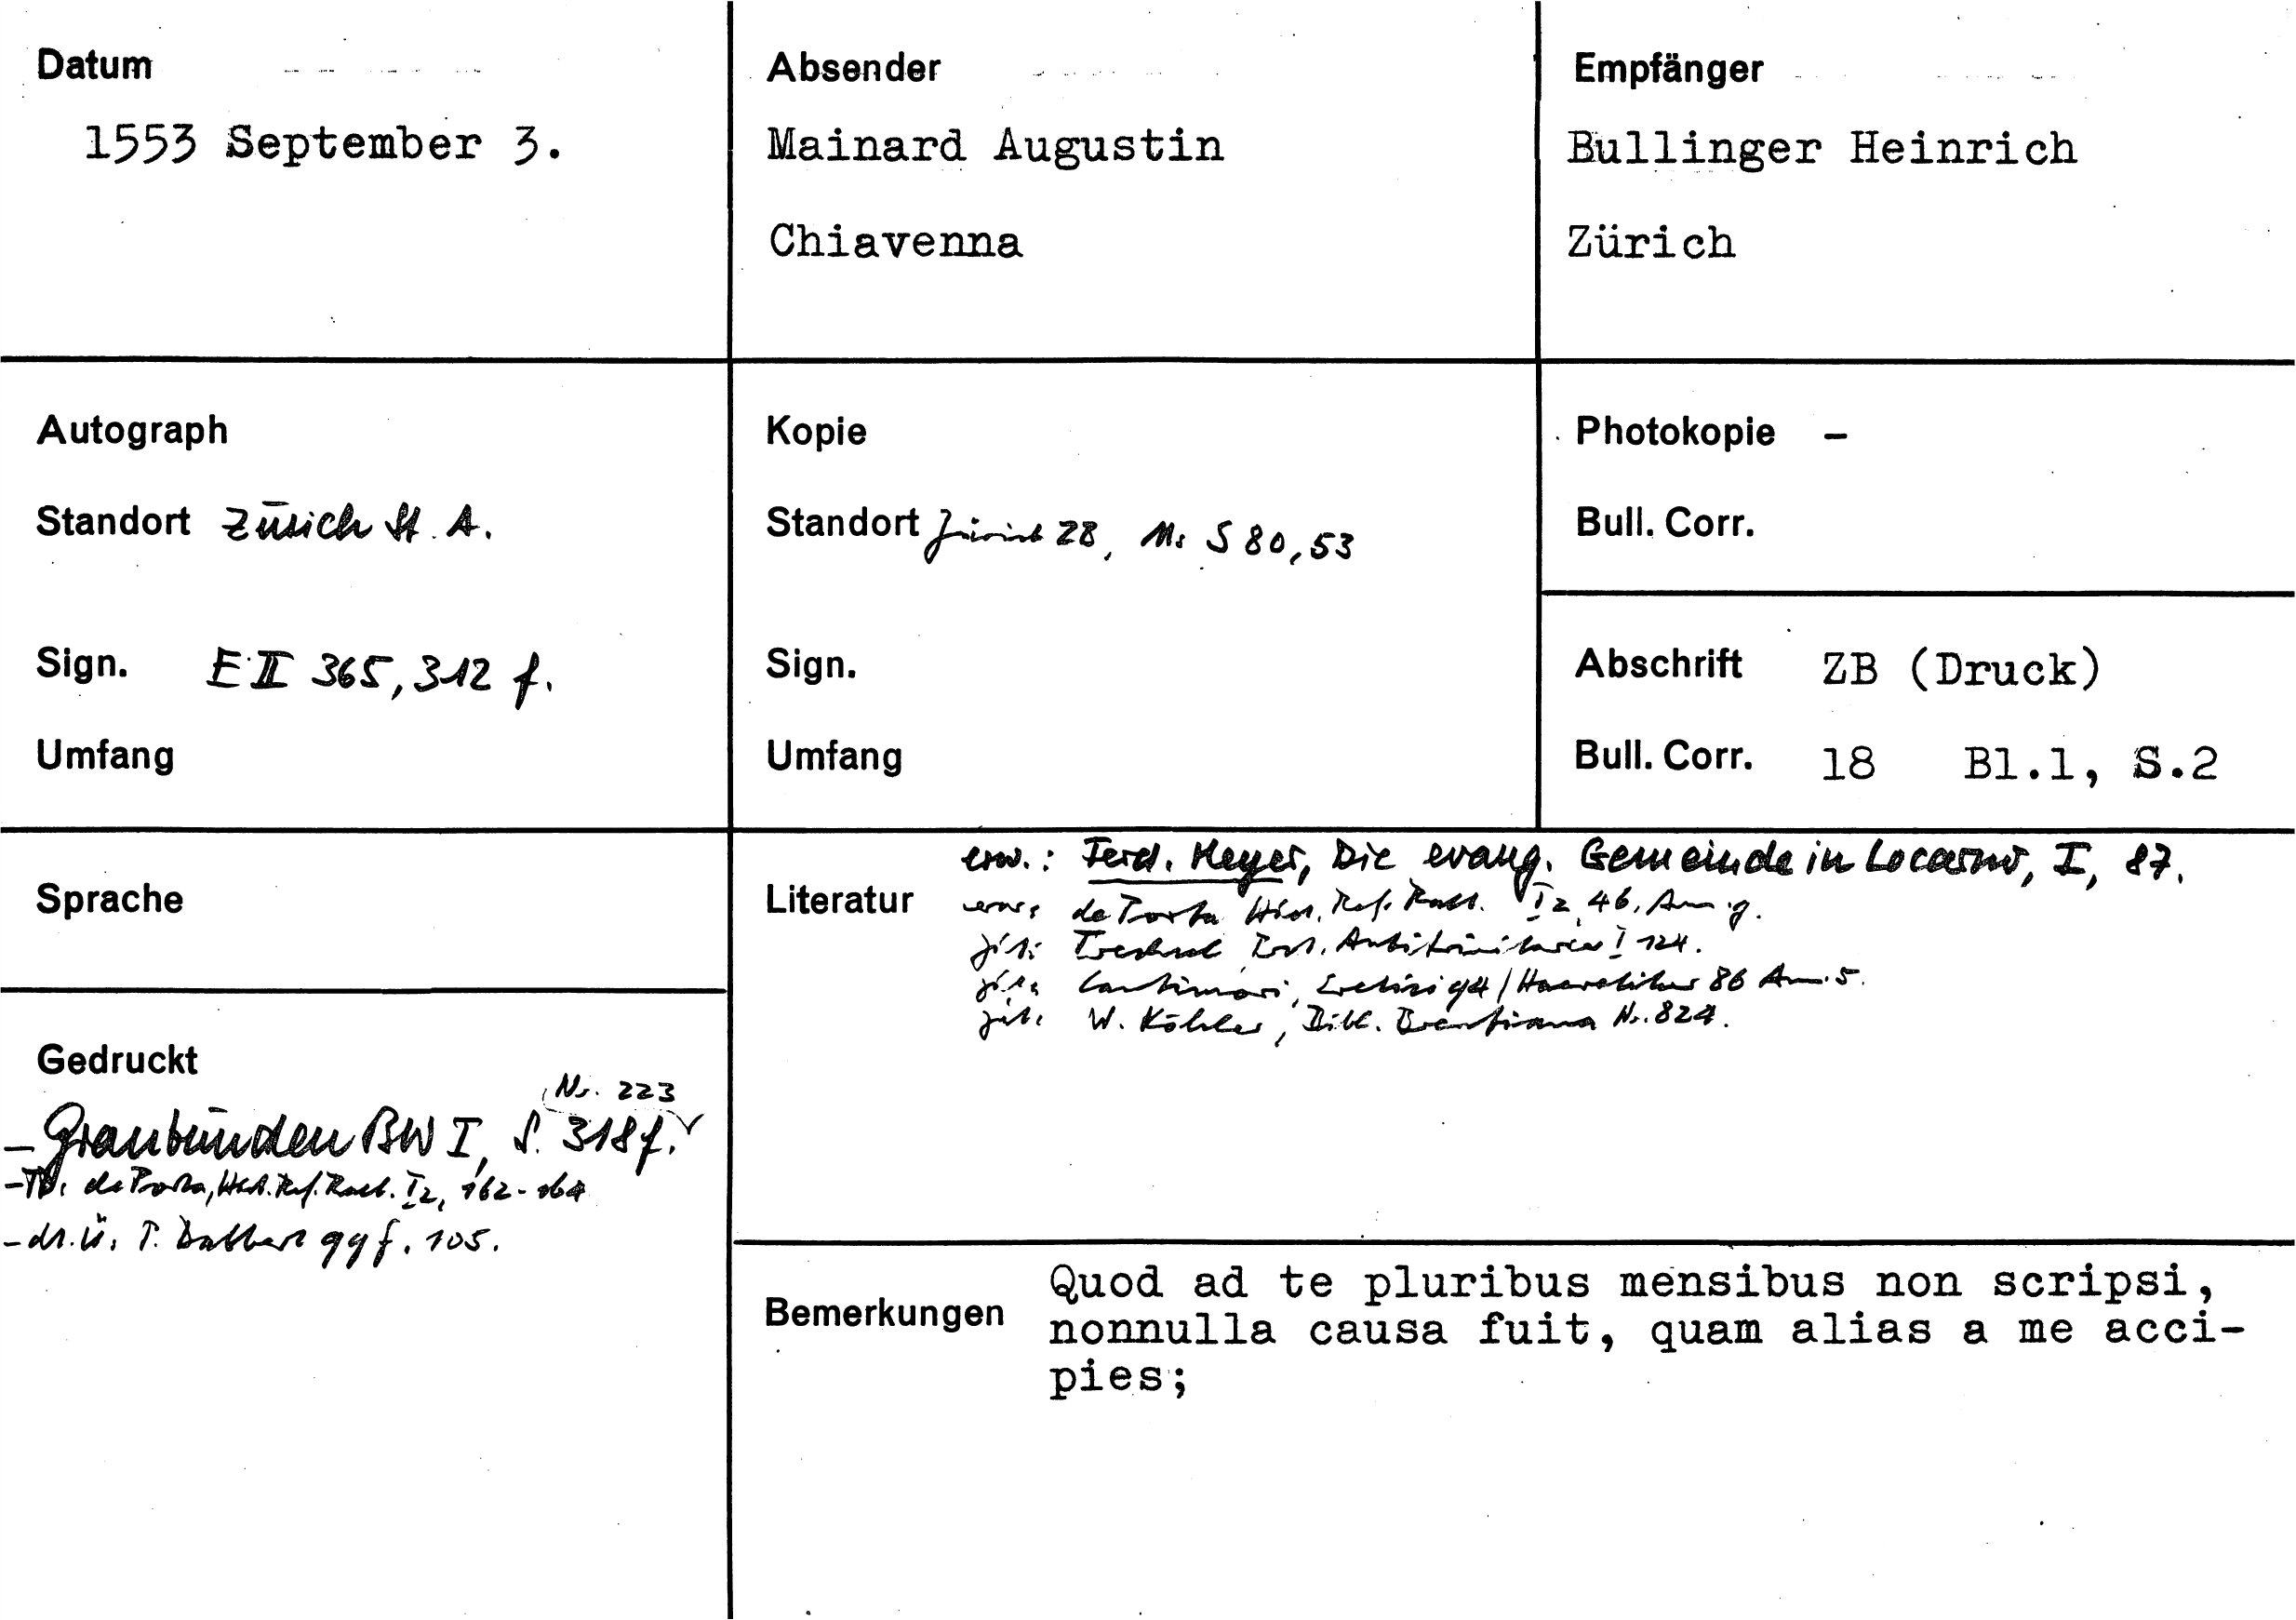 Datum
1553 September 3.
Absender
Mainard Augustin
Chiavenna
Empfänger
Bullinger Heinrich
Zürich
Autograph
Standort Zürich St. A.
Sign. E II 365, 312 f.
Umfang
Kopie
Standort Zürich ZB, Ms S 80, 53
Sign.
Umfang
Photokopie –
Bull. Corr.
Abschrift ZB (Druck)
Bull. Corr. 18 Bl.1, S.2
Sprache
Gedruckt
Nr. 223
– Graubünden BW I, S. 318 f.
de Porta, Hist. Ref. Raet. I2, 162-164
– dt. Ü: T. Balbert 99 f. 105.
Literatur
erw.: Ferd. Meyer, Die evang. Gemeinde in Locarno, I, 87.
erw: de Porta Hist. Ref. Raet. I2, 46, Anm. g.
zit: Trechsel, Prot. Antitrinitarier I 124.
zit: Cantimori, Eretici 94 / Haeretiker 86 Anm. 5.
zit: W. Köhler, Bibl. Brentiana Nr. 824.
Bemerkungen
Quod ad te pluribus mensibus non scripsi,
nonnulla causa fuit, quam alias a me acci-
pies;